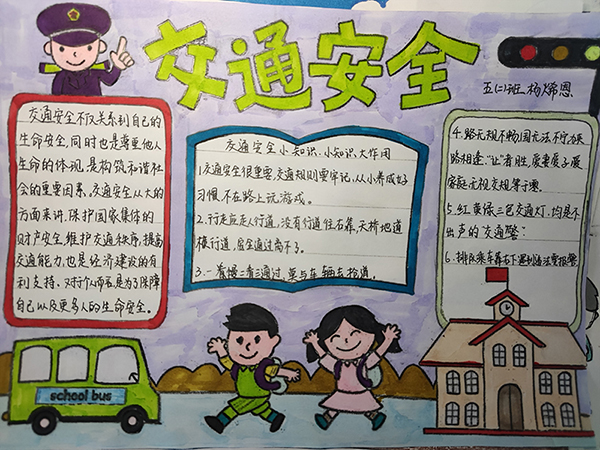 交通安全
五(二)班 杨烯恩
交通安全不仅关系到自己的
生命安全,同时也是尊重他人
生命的体现,是构筑和谐社
会的重要因素。交通安全从大的
方面来讲,保护国家集体的
财产安全,维护交通秩序,提高
交通能力,也是经济建设的有
利支持、对于个人而言,是为了保障
自己以及更多人的生命安全。
交通安全小知识、小知识、大作用
1.交通安全很重要,交通规则要牢记,从小养成好
习惯,不在路上玩游戏。
2.行走应走人行道,没有行道往右靠,天桥地道
横行道,
3.一看慢二看三通过,莫与车辆去抢道。
4.路无规不畅,国无法不宁,
路相逢"让"者胜,
5.红黄绿三色交通灯,均是不
出声的交通警;
6.排队
school bus